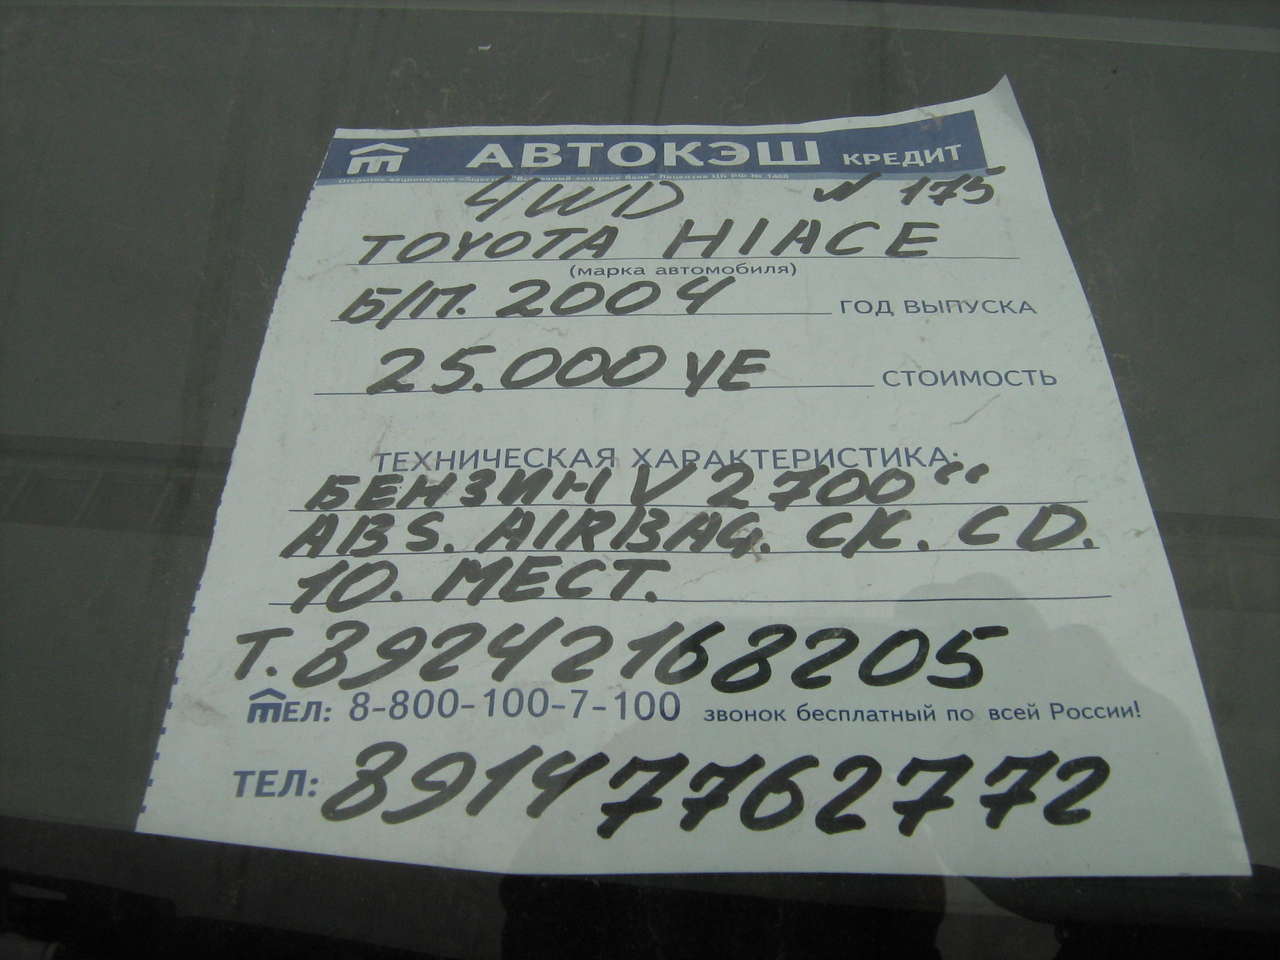 АВТОКЭШ КРЕДИТ
Открытое акционерное общество "Восточный экспресс банк" Лицензия ЦБ РФ № 1460
4WD N 175
TOYOTA HIACE
(марка автомобиля)
Б/П. 2004 ГОД ВЫПУСКА
25.000 УЕ СТОИМОСТЬ
ТЕХНИЧЕСКАЯ ХАРАКТЕРИСТИКА:
БЕНЗИН V 2700"
ABS. AIRBAG. СК. CD.
10. МЕСТ.
Т. 89242168205
ТЕЛ: 8-800-100-7-100 звонок бесплатный по всей России!
ТЕЛ: 89147762772